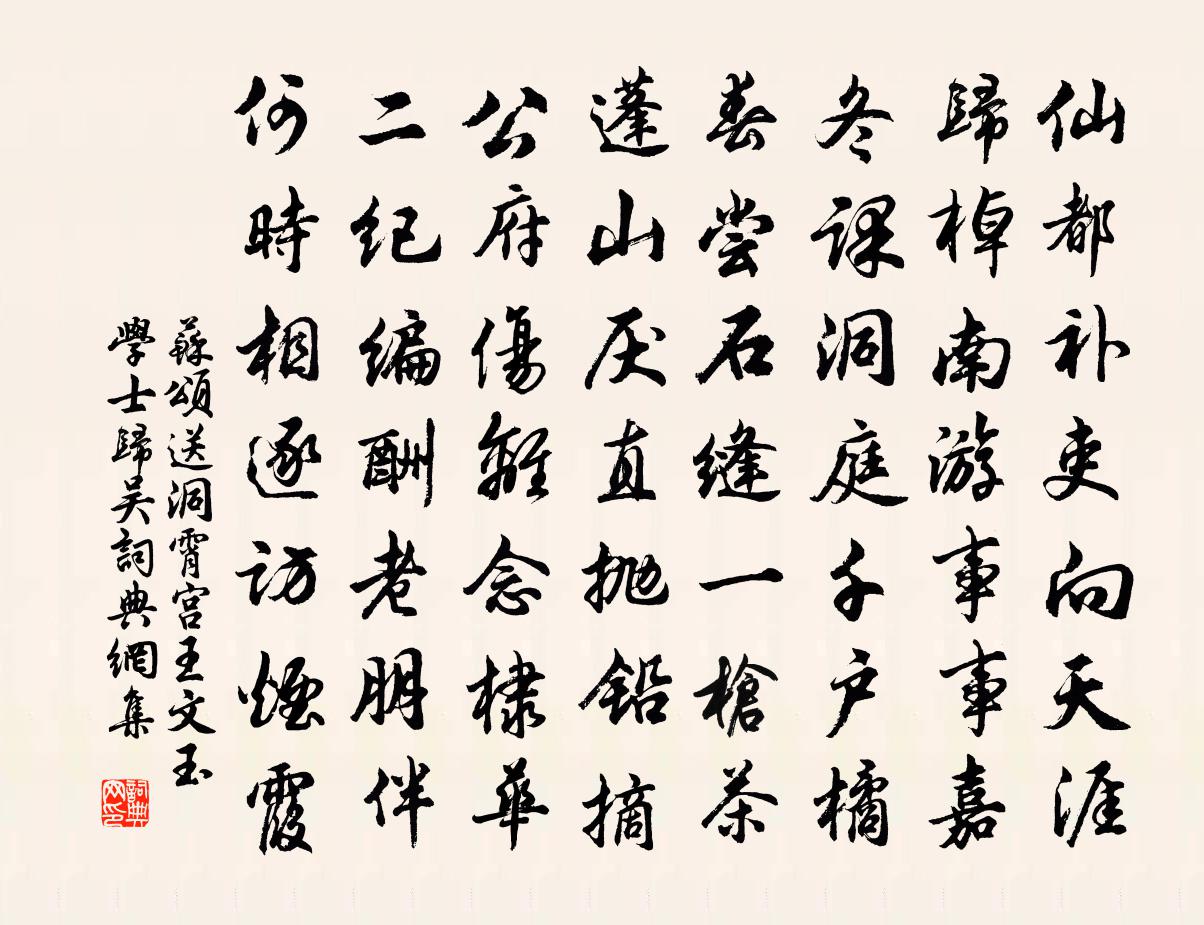 仙都补吏向天涯
歸棹南游事事嘉
冬課洞庭千户橘
春尝石縫一槍茶
蓬山厌直抛鉛摘
公府傷離念棣華
二纪编酬老朋伴
何時相逐访煙霞
蘇頌送洞霄宫王文玉
學士歸吴詞典網集
詞典
网印